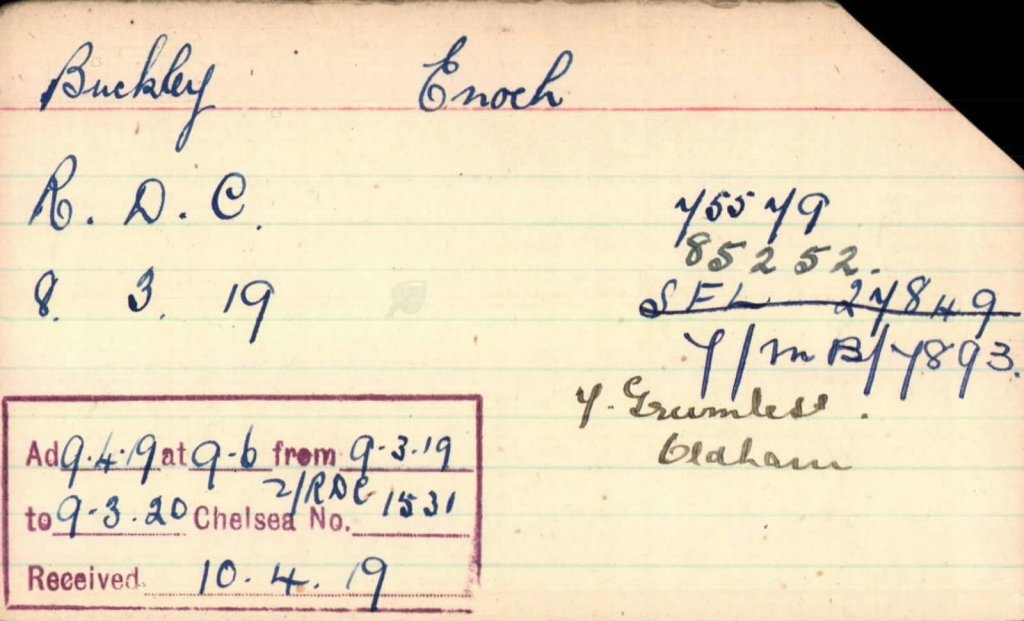 Buckley Enoch
R. D. C.
8. 3. 19
75579
85252.
SFL 27849
7/MB/7893.
7. Grumless.
Oldham
Ad 9.4.19 at 9-6 from 9-3-19
2/RDC
to 9-3-20 Chelsea No. 1531
Received 10.4.19